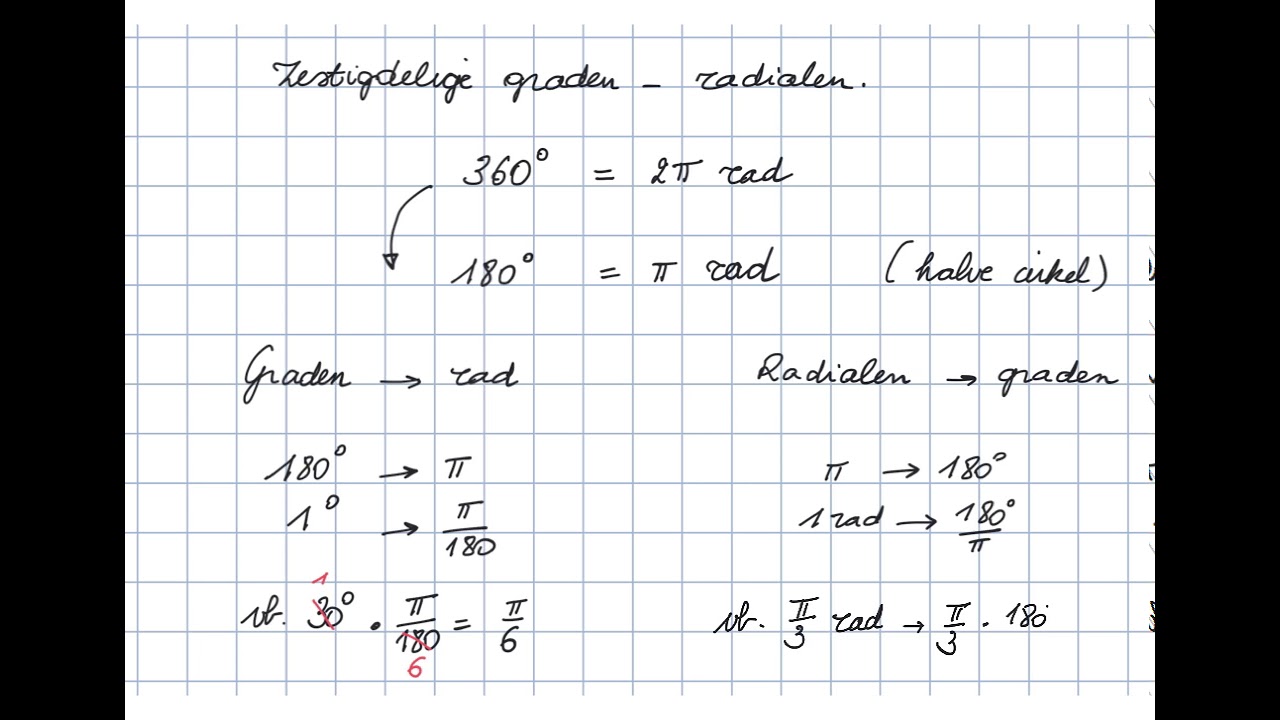 Zestigdelige graden - radialen.
360° = 2π rad
180° = π rad (halve cirkel)
Graden → rad
180° → π
1° → π/180
vb. 30° · π/180 = π/6
1
6
Radialen → graden
π → 180°
1 rad → 180°/π
vb. π/3 rad → π/3 · 180